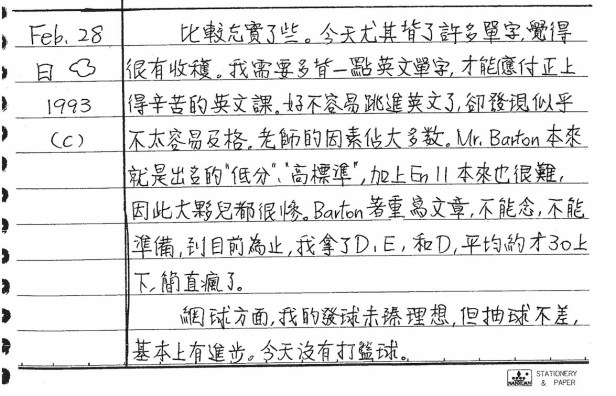 Feb. 28
日
1993
(C)
比較充實了些。今天尤其背了許多單字,覺得
很有收穫。我需要多背一點英文單字,才能應付正上
得辛苦的英文課。好不容易跳進英文了,卻發現似乎
不太容易及格。老師的因素佔大多数。Mr. Barton 本來
就是出名的"低分"、"高標準",加上En 11 本來也很難,
因此大夥兒都很慘。Barton 著重寫文章,不能念,不能
準備,到目前為止,我拿了D、E、和D,平均約才30上
下,簡直瘋了。
網球方面,我的發球未臻理想,但抽球不差,
基本上有進步。今天沒有打籃球。
STATIONERY
& PAPER